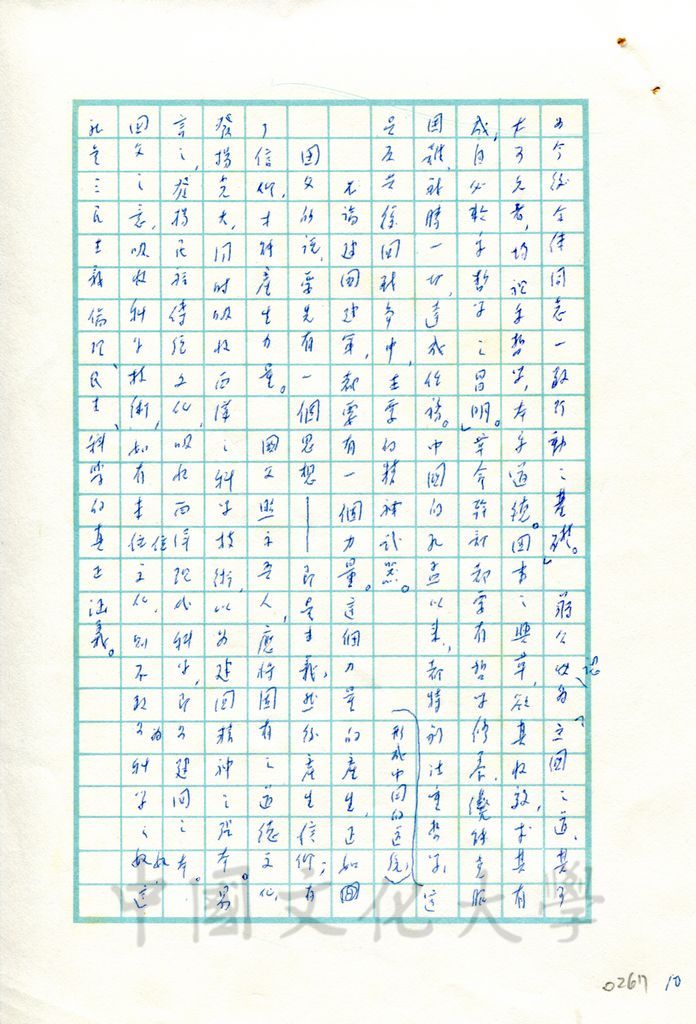 為今後全体同志一致行動之基礎。」蔣公以為「立國之道，其可
大可久者，均視乎哲學，本乎道德。國事之興革，欲其收效，求其有
成，自必乾乎哲學之昌明。」革命幹部都要有哲學修養，纔能克服
困難，戰勝一切，達成任務。中國的孔孟以來，都特別注重哲學，這
是五共徐回戰争中，主要的精神武器。（形成中國的道統）
不論建國建軍，都要有一個力量。這個力量的產生，正如國
國父所說，要先有一個思想——即是主義，然後產生信仰；有
了信仰，才能產生力量。國父照示吾人，應將固有之道德文化，
發揚光大，同時吸收西洋之科學技術，以為建國精神之張本。易
言之，發揚民族傳統文化，吸收西洋現代科學，即為建國之本。
國父之意，吸收科學技術，如有本位主化，則不致為科學之奴，這
就是三民主義倫理、民主、科學的真正涵義。
中國文化大學
0267 10